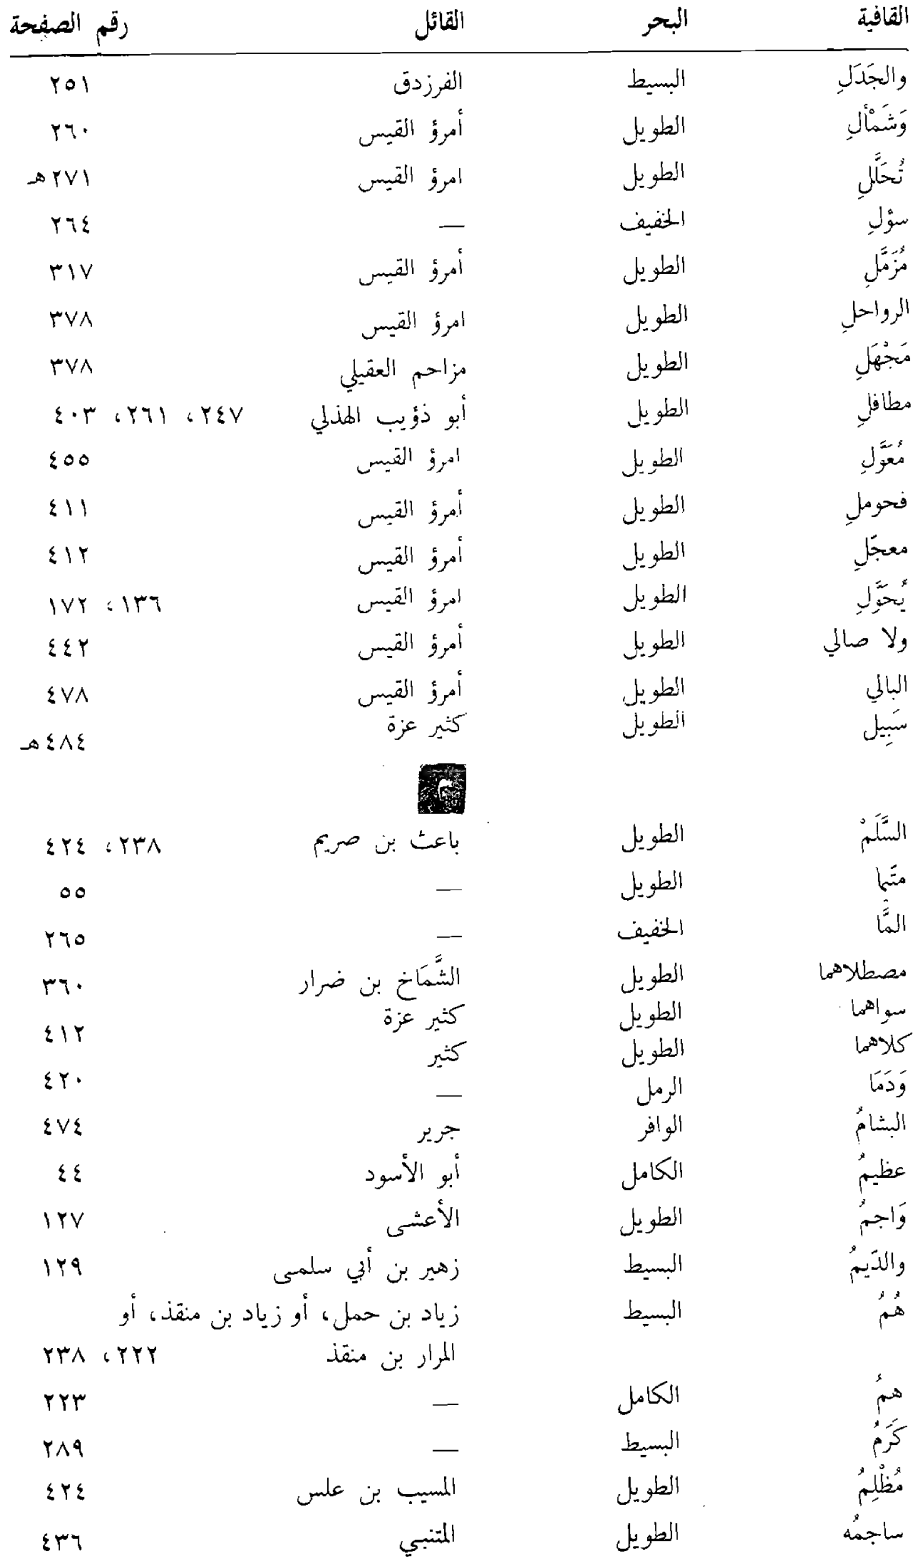 القافية البحر القائل رقم الصفحة
والجَدَلِ البسيط الفرزدق ٢٥١
وَشَمْأَلِ الطويل أمرؤ القيس ٢٦٠
تُحَلَّلِ الطويل امرؤ القيس ٢٧١هـ
سؤلِ الخفيف — ٢٦٤
مُزَمَّلِ الطويل أمرؤ القيس ٣١٧
الرواحلِ الطويل امرؤ القيس ٣٧٨
مَجْهَلِ الطويل مزاحم العقيلي ٣٧٨
مطافلِ الطويل أبو ذؤيب الهذلي ٢٤٧، ٢٦١، ٤٠٣
مُعَوَّلِ الطويل امرؤ القيس ٤٥٥
فحوملِ الطويل أمرؤ القيس ٤١١
معجّلِ الطويل أمرؤ القيس ٤١٢
يُحَوَّلِ الطويل امرؤ القيس ١٣٦، ١٧٢
ولا صالي الطويل أمرؤ القيس ٤٤٢
البالي الطويل أمرؤ القيس ٤٧٨
سَبِيل الطويل كثير عزة ٤٨٤هـ
م
السَّلَمْ الطويل باعث بن صريم ٢٣٨، ٤٢٤
متّيما الطويل — ٥٥
المَّا الخفيف — ٢٦٥
مصطلاهما الطويل الشَّمَاخ بن ضرار ٣٦٠
سواهما الطويل كثير عزة ٤١٢
كلاهما الطويل كثير
وَدَمَا الرمل — ٤٢٠
البشامُ الوافر جرير ٤٧٤
عظيمُ الكامل أبو الأسود ٤٤
وَاجمُ الطويل الأعشى ١٢٧
والدّيمُ البسيط زهير بن أبي سلمى ١٢٩
هُمُ البسيط زياد بن حمل، أو زياد بن منقذ، أو
المرار بن منقذ ٢٢٢، ٢٣٨
همُ الكامل — ٢٢٣
كَرَمُ البسيط — ٢٨٩
مُظْلِمُ الطويل المسيب بن علس ٤٢٤
ساجمُه الطويل المتنبي ٤٣٦